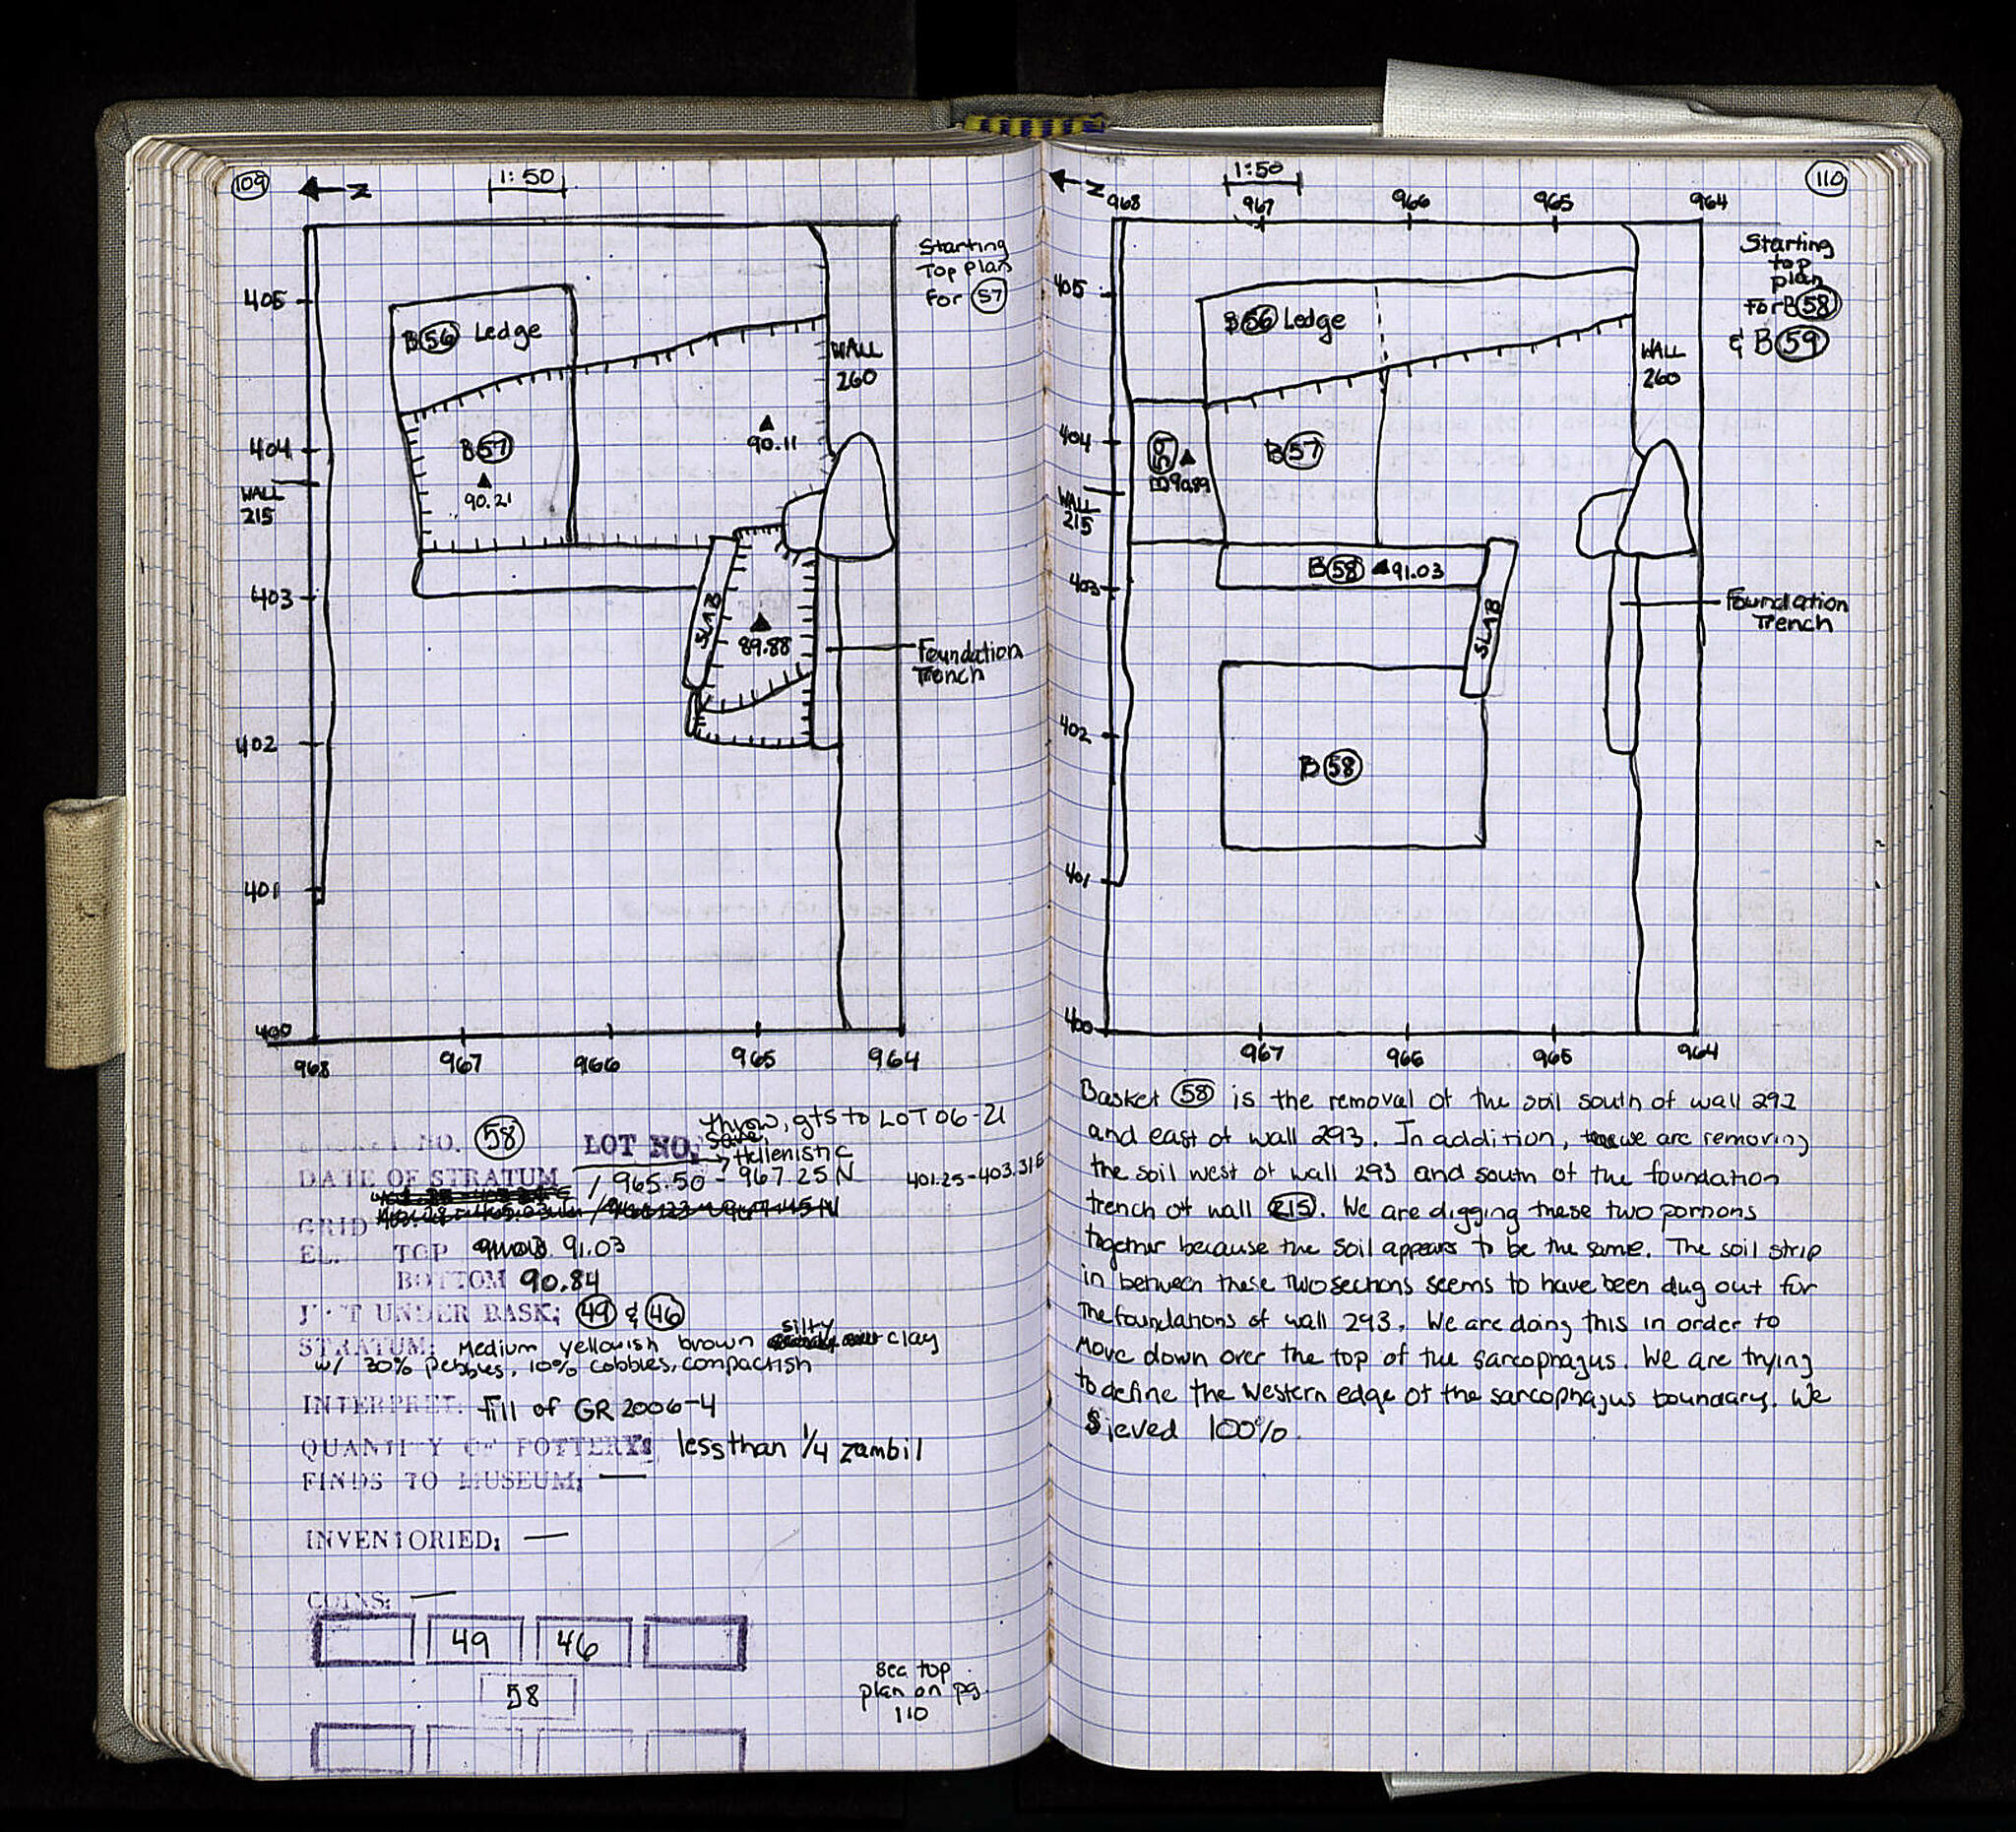 109
N
1:50
Starting
Top plan
for 57
405
B56 Ledge
WALL
260
404
B57
90.21
90.11
WALL
215
403
SLAB
89.88
Foundation
Trench
402
401
400
968 967 966 965 964
BASKET NO. 58
LOT NO.
throw, gts to LOT 06-21
save,
Hellenistic
DATE OF STRATUM
/ 965.50 - 967.25 N 401.25-403.31E
GRID
EL. TOP 91.03
BOTTOM 90.84
JUST UNDER BASK; 49 & 46
STRATUM: Medium yellowish brown silty clay
w/ 30% pebbles, 10% cobbles, compactish
INTERPRET: fill of GR 2006-4
QUANTITY OF POTTERY: less than 1/4 zambil
FINDS TO MUSEUM; —
INVENTORIED; —
COINS: —
49 46
58
see top
plan on pg.
110
110
N
1:50
968 967 966 965 964
Starting
top
plan
for B58
& B59
405
B56 Ledge
WALL
260
404
B59
90.89
B57
WALL
215
B58 91.03
403
SLAB
Foundation
Trench
402
B58
401
400
967 966 965 964
Basket 58 is the removal of the soil south of wall 292
and east of wall 293. In addition, we are removing
the soil west of wall 293 and south of the foundation
trench of wall 215. We are digging these two portions
together because the soil appears to be the same. The soil strip
in between these two sections seems to have been dug out for
the foundations of wall 293. We are doing this in order to
move down over the top of the sarcophagus. We are trying
to define the western edge of the sarcophagus boundary. We
sieved 100%.